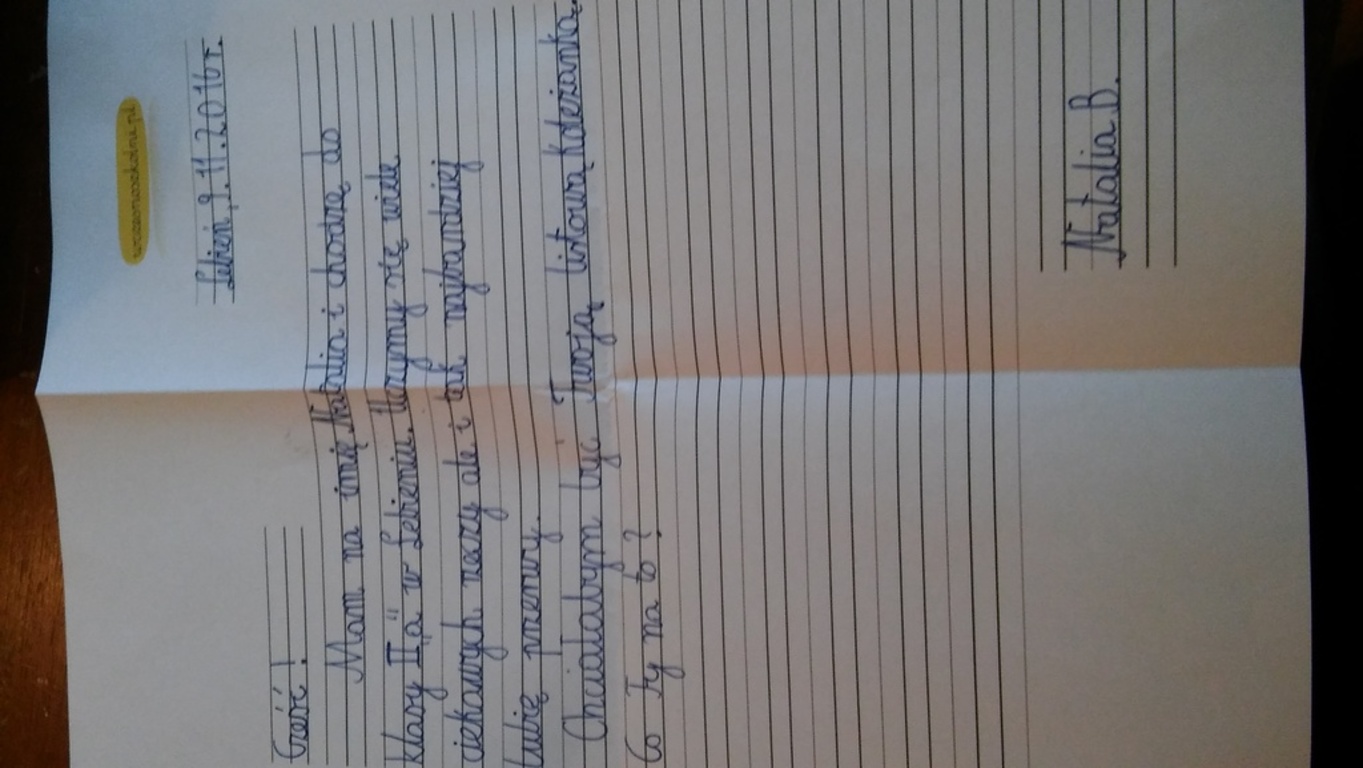 wczasnoszkolni.pl
Lebień, 9.11.2016 r.
Cześć!
Mam na imię Natalia i chodzę do
klasy II „a" w Lebieniu. Uczymy się wiele
ciekawych rzeczy ale i tak najbardziej
lubię przerwy.
Chciałabym być Twoją listową koleżanką.
Co Ty na to?
Natalia B.